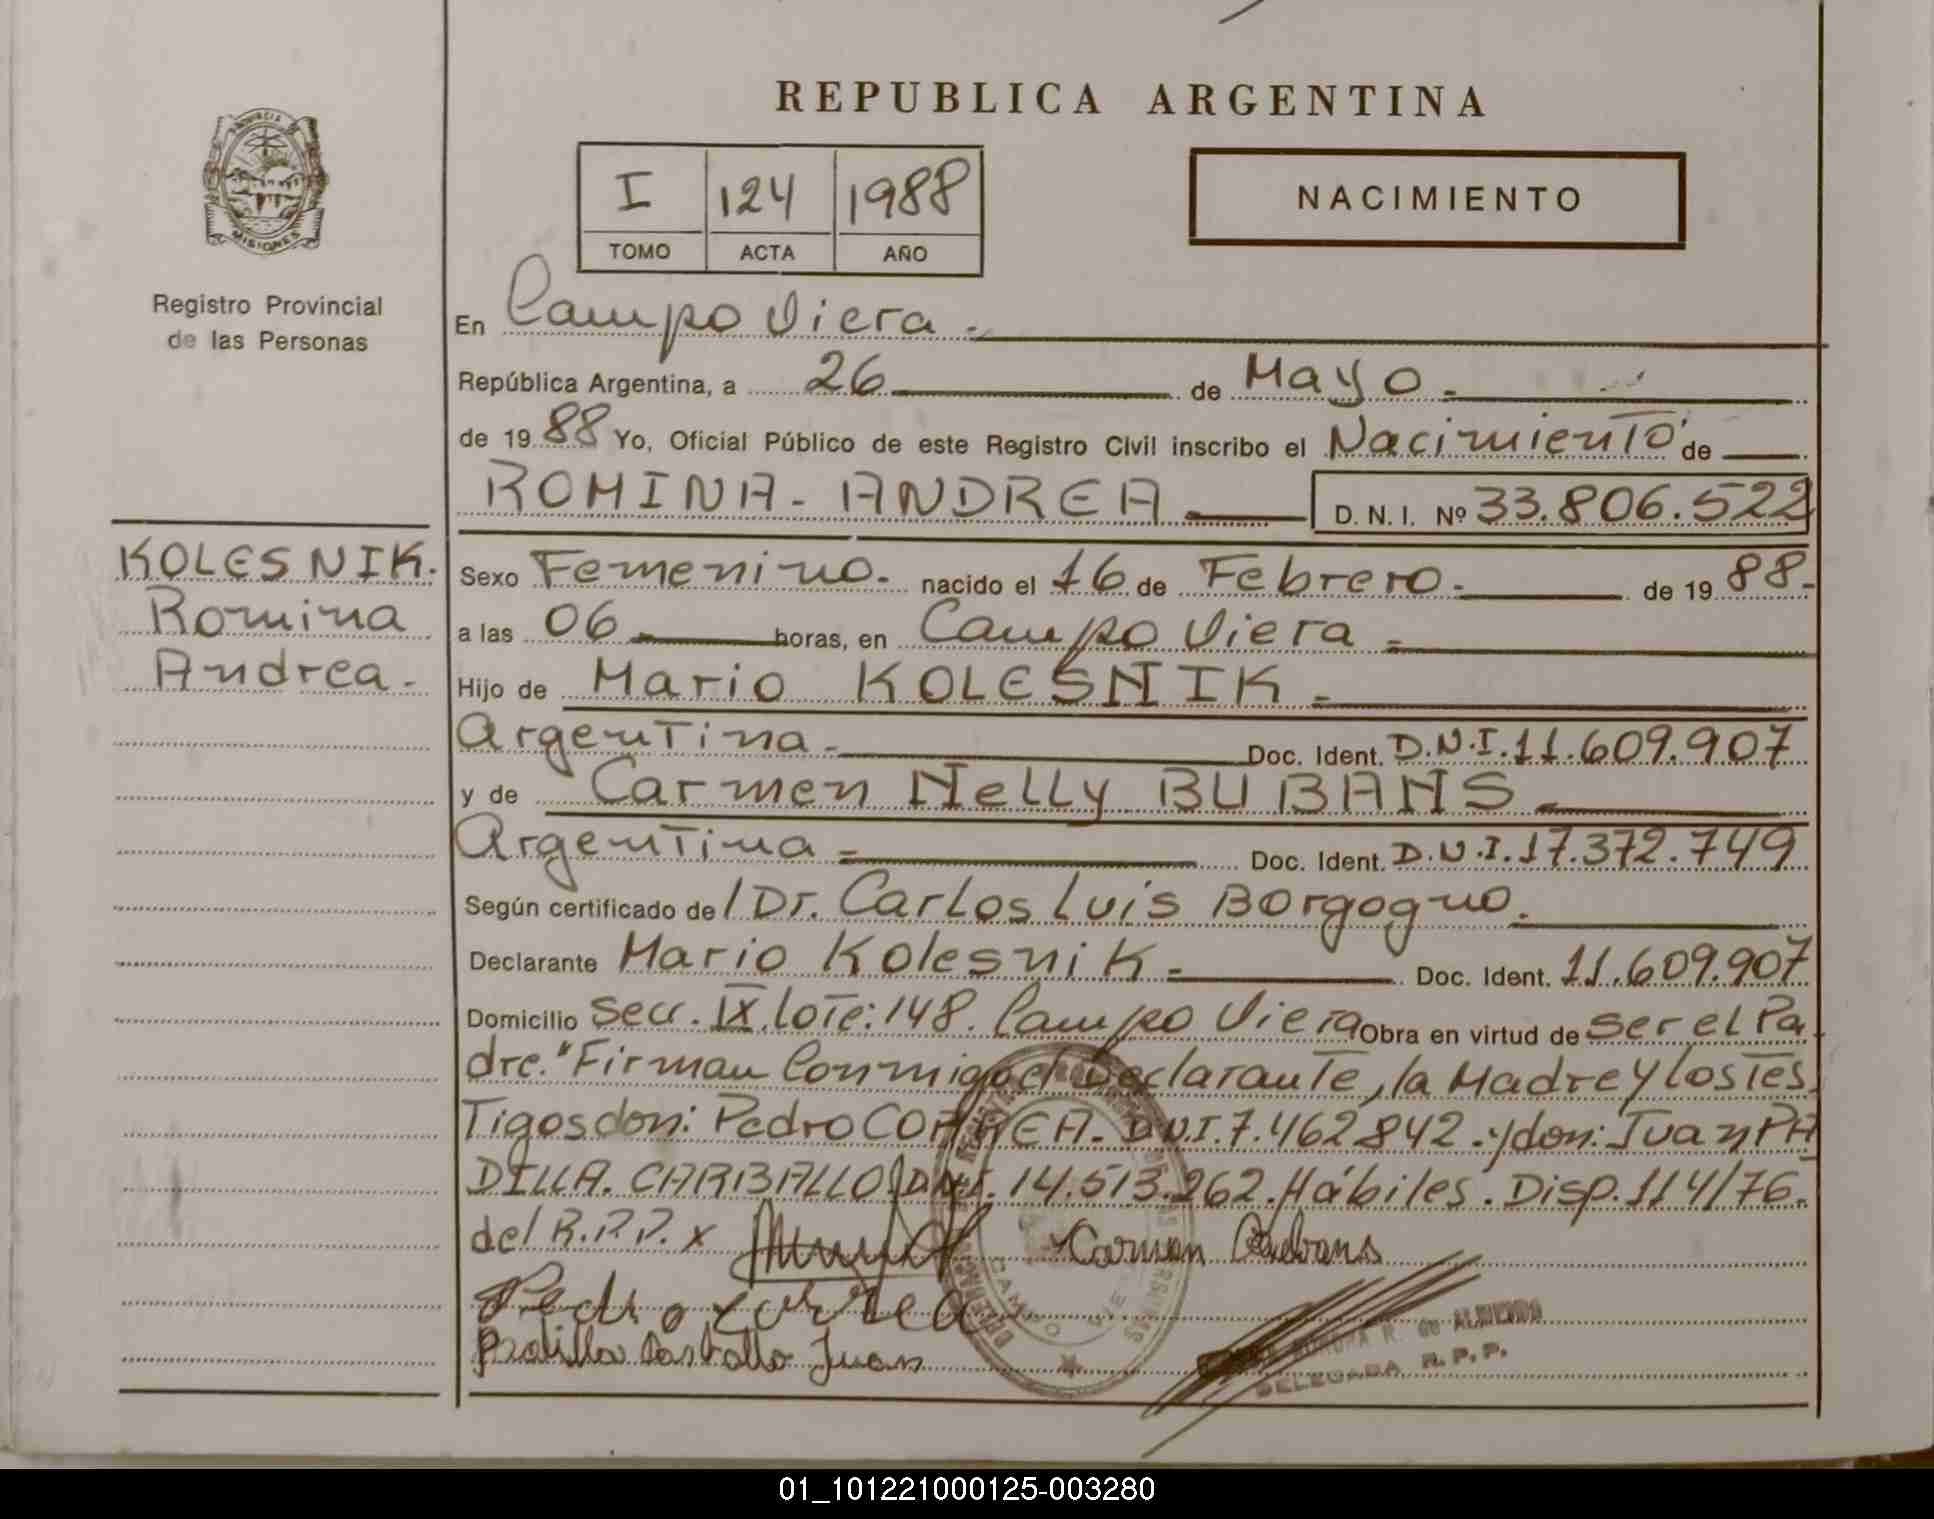 REPUBLICA ARGENTINA
PROVINCIA DE
MISIONES
Registro Provincial
de las Personas
I 124 1988
TOMO ACTA AÑO
NACIMIENTO
En Campo Viera.
República Argentina, a 26 de Mayo.
de 1988 Yo, Oficial Público de este Registro Civil inscribo el Nacimiento de
ROMINA-ANDREA D. N. I. Nº 33.806.522
KOLESNIK.
Romina
Andrea.
Sexo Femenino. nacido el 16 de Febrero. de 1988.
a las 06 horas, en Campo Viera
Hijo de Mario KOLESNIK.
Argentina. Doc. Ident. D.N.I. 11.609.907
y de Carmen Nelly BUBANS
Argentina Doc. Ident. D.N.I. 17.372.749
Según certificado de / Dr. Carlos Luis Borgogno.
Declarante Mario Kolesnik. Doc. Ident. 11.609.907
Domicilio Secc. IX. lote: 148. Campo Viera Obra en virtud de ser el Pa
dre." Firman Conmigo el Declarante, la Madre y los Tes
Tigos don: Pedro CORREA. D.N.I. 7.462842. y don: Juan PA
DILLA. CARBALLO D.N.I. 14.513.262. Hábiles. Disp. 114/76.
del R.P.P. x
Carmen Bubans
Pedro Correa
Padilla Juan
CAMPO VIE
R. de ALMEIDA
DELEGADA R. P. P.
01_101221000125-003280